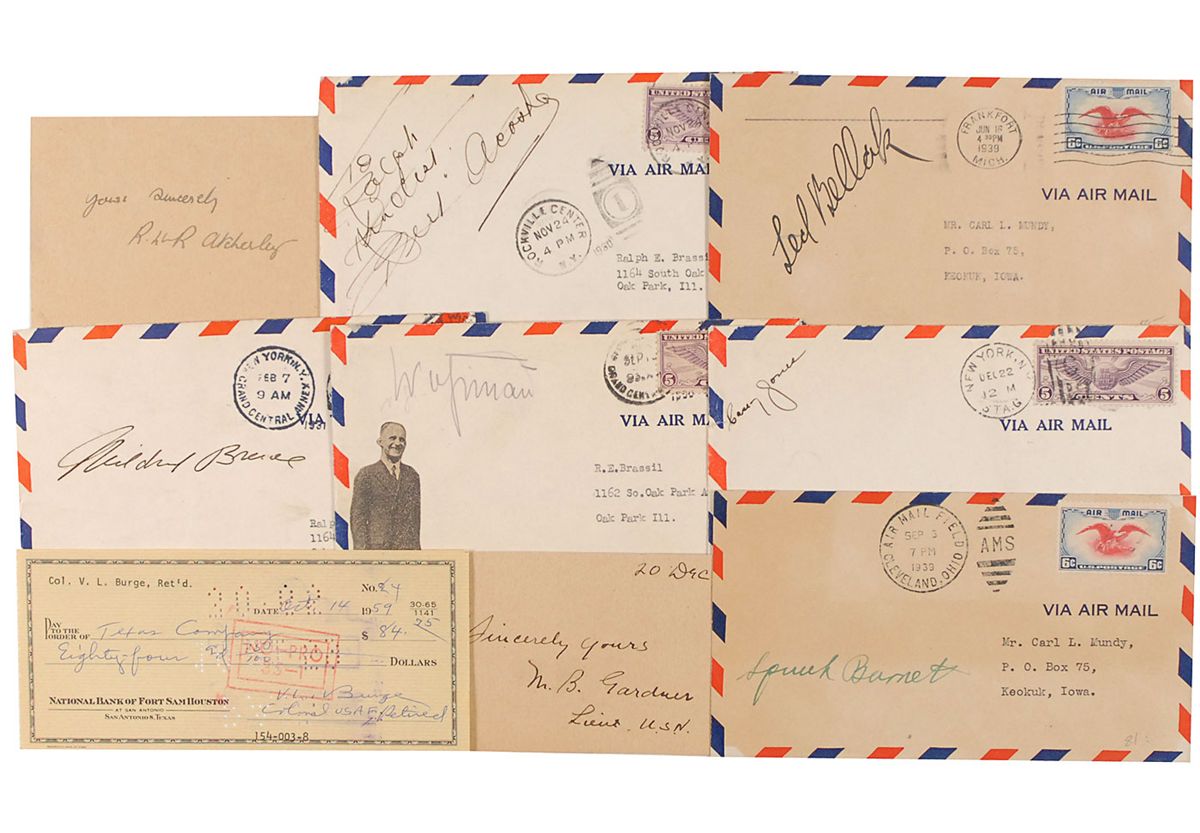 Yours sincerely
R. L. R. Atcherley
To
Ralph
Kindest
Bert Acosta
UNITED STA
5
ROCKVILLE CENTER
NOV 24
4 PM
N.Y.
1930
1
VIA AIR MA
Ralph E. Brassi
1164 South Oak
Oak Park, Ill.
Ted Bellak
FRANKFORT
JUN 16
4 30 PM
1939
MICH.
AIR MAIL
6¢ 6¢
VIA AIR MAIL
MR. CARL L. MUNDY,
P. O. BOX 75,
KEOKUK, IOWA.
NEW YORK, N.Y.
FEB 7
9 AM
GRAND CENTRAL ANNEX
1931
VIA
Mildred Bruce
Ralp
1164
SEP
GRAND CENTRAL
1930
5
VIA AIR M
R.E.Brassil
1162 So.Oak Park A
Oak Park Ill.
Casey Jones
NEW YORK, N.Y.
DEC 22
12 M
STA. G
UNITED STATES POSTAGE
5 CENTS 5
VIA AIR MAIL
Col. V. L. Burge, Ret'd.
No. 24
DATE Oct 14 1959
30-65
1141
PAY
TO THE
ORDER OF Texas Company $ 84.75
Eighty-four
DOLLARS
NATIONAL BANK OF FORT SAM HOUSTON
AT SAN ANTONIO
SAN ANTONIO 8, TEXAS
V. L. Burge
Colonel USAF Retired
154-003-8
20 DEC
Sincerely yours
M. B. Gardner
Lieut U.S.N.
AIR MAIL FIELD
SEP 3
7 PM
1939
CLEVELAND, OHIO
AMS
AIR MAIL
6¢ U.S. POSTAGE 6¢
VIA AIR MAIL
Spunk Burnet
Mr. Carl L. Mundy,
P. O. Box 75,
Keokuk, Iowa.